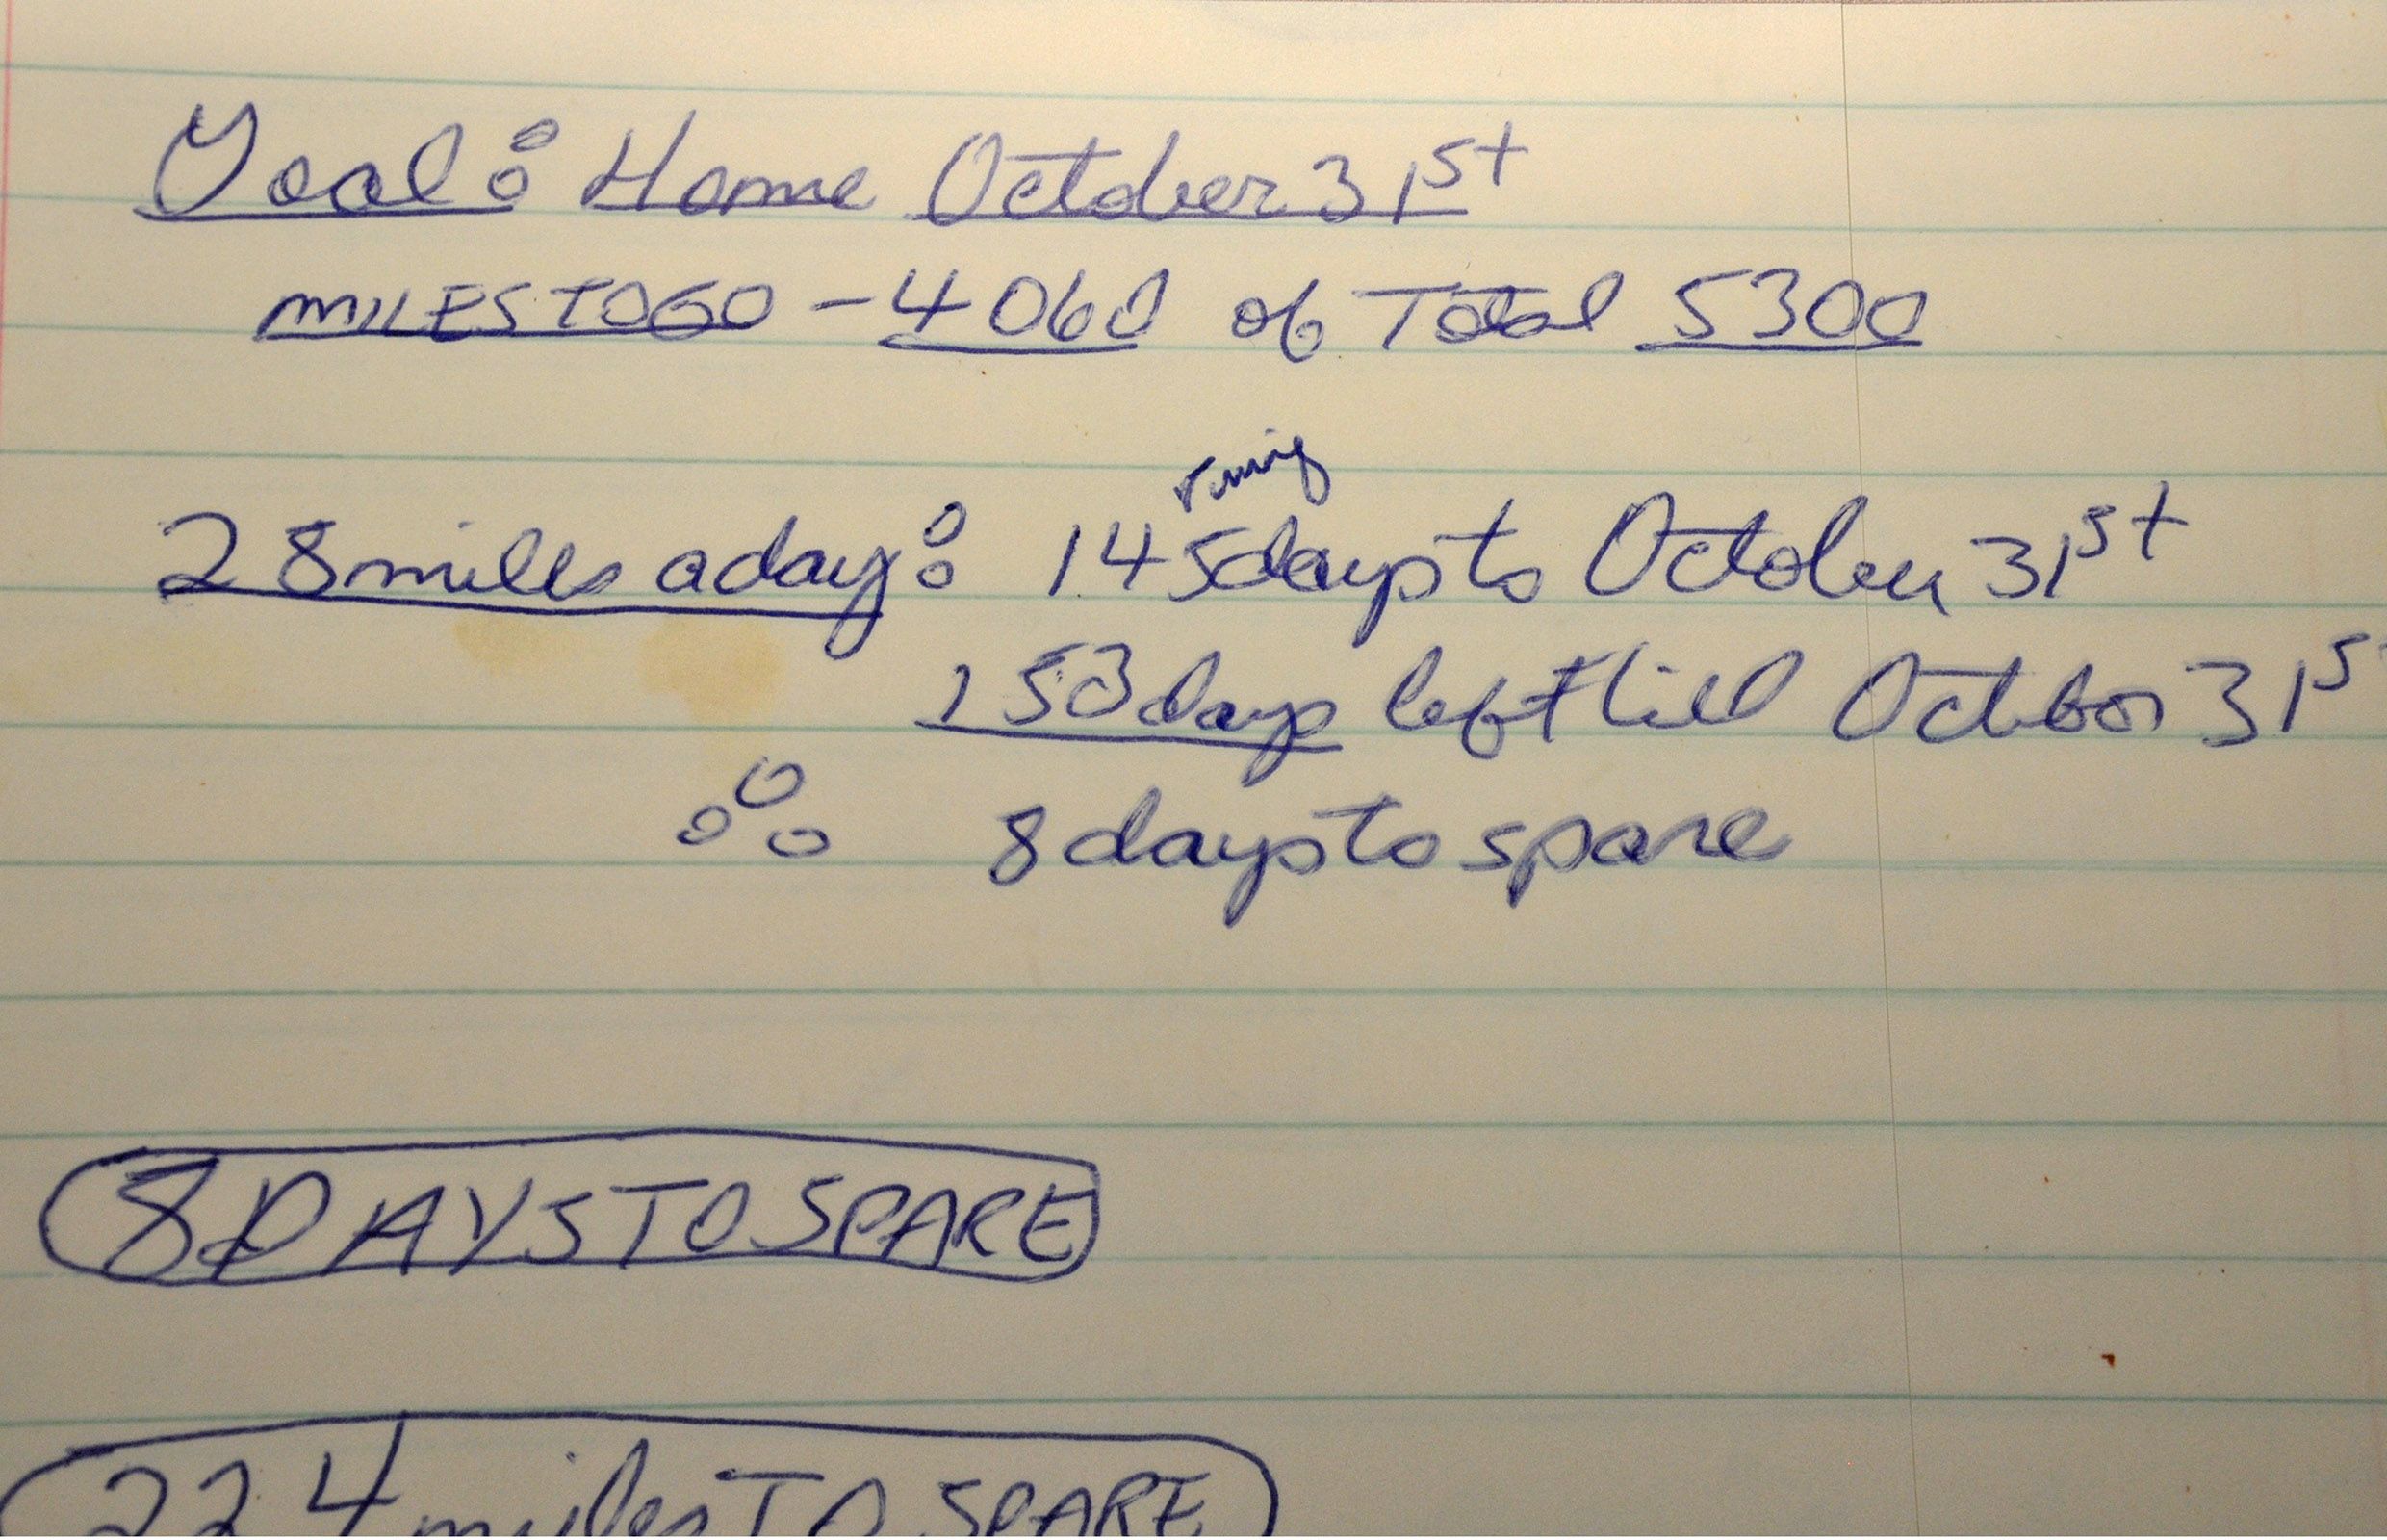 Goal: Home October 31st
MILES TO GO - 4060 of Total 5300
Timing
28 miles a day: 145 days to October 31st
153 days left till October 31s
∴ 8 days to spare
8 DAYS TO SPARE
224 miles TO SPARE